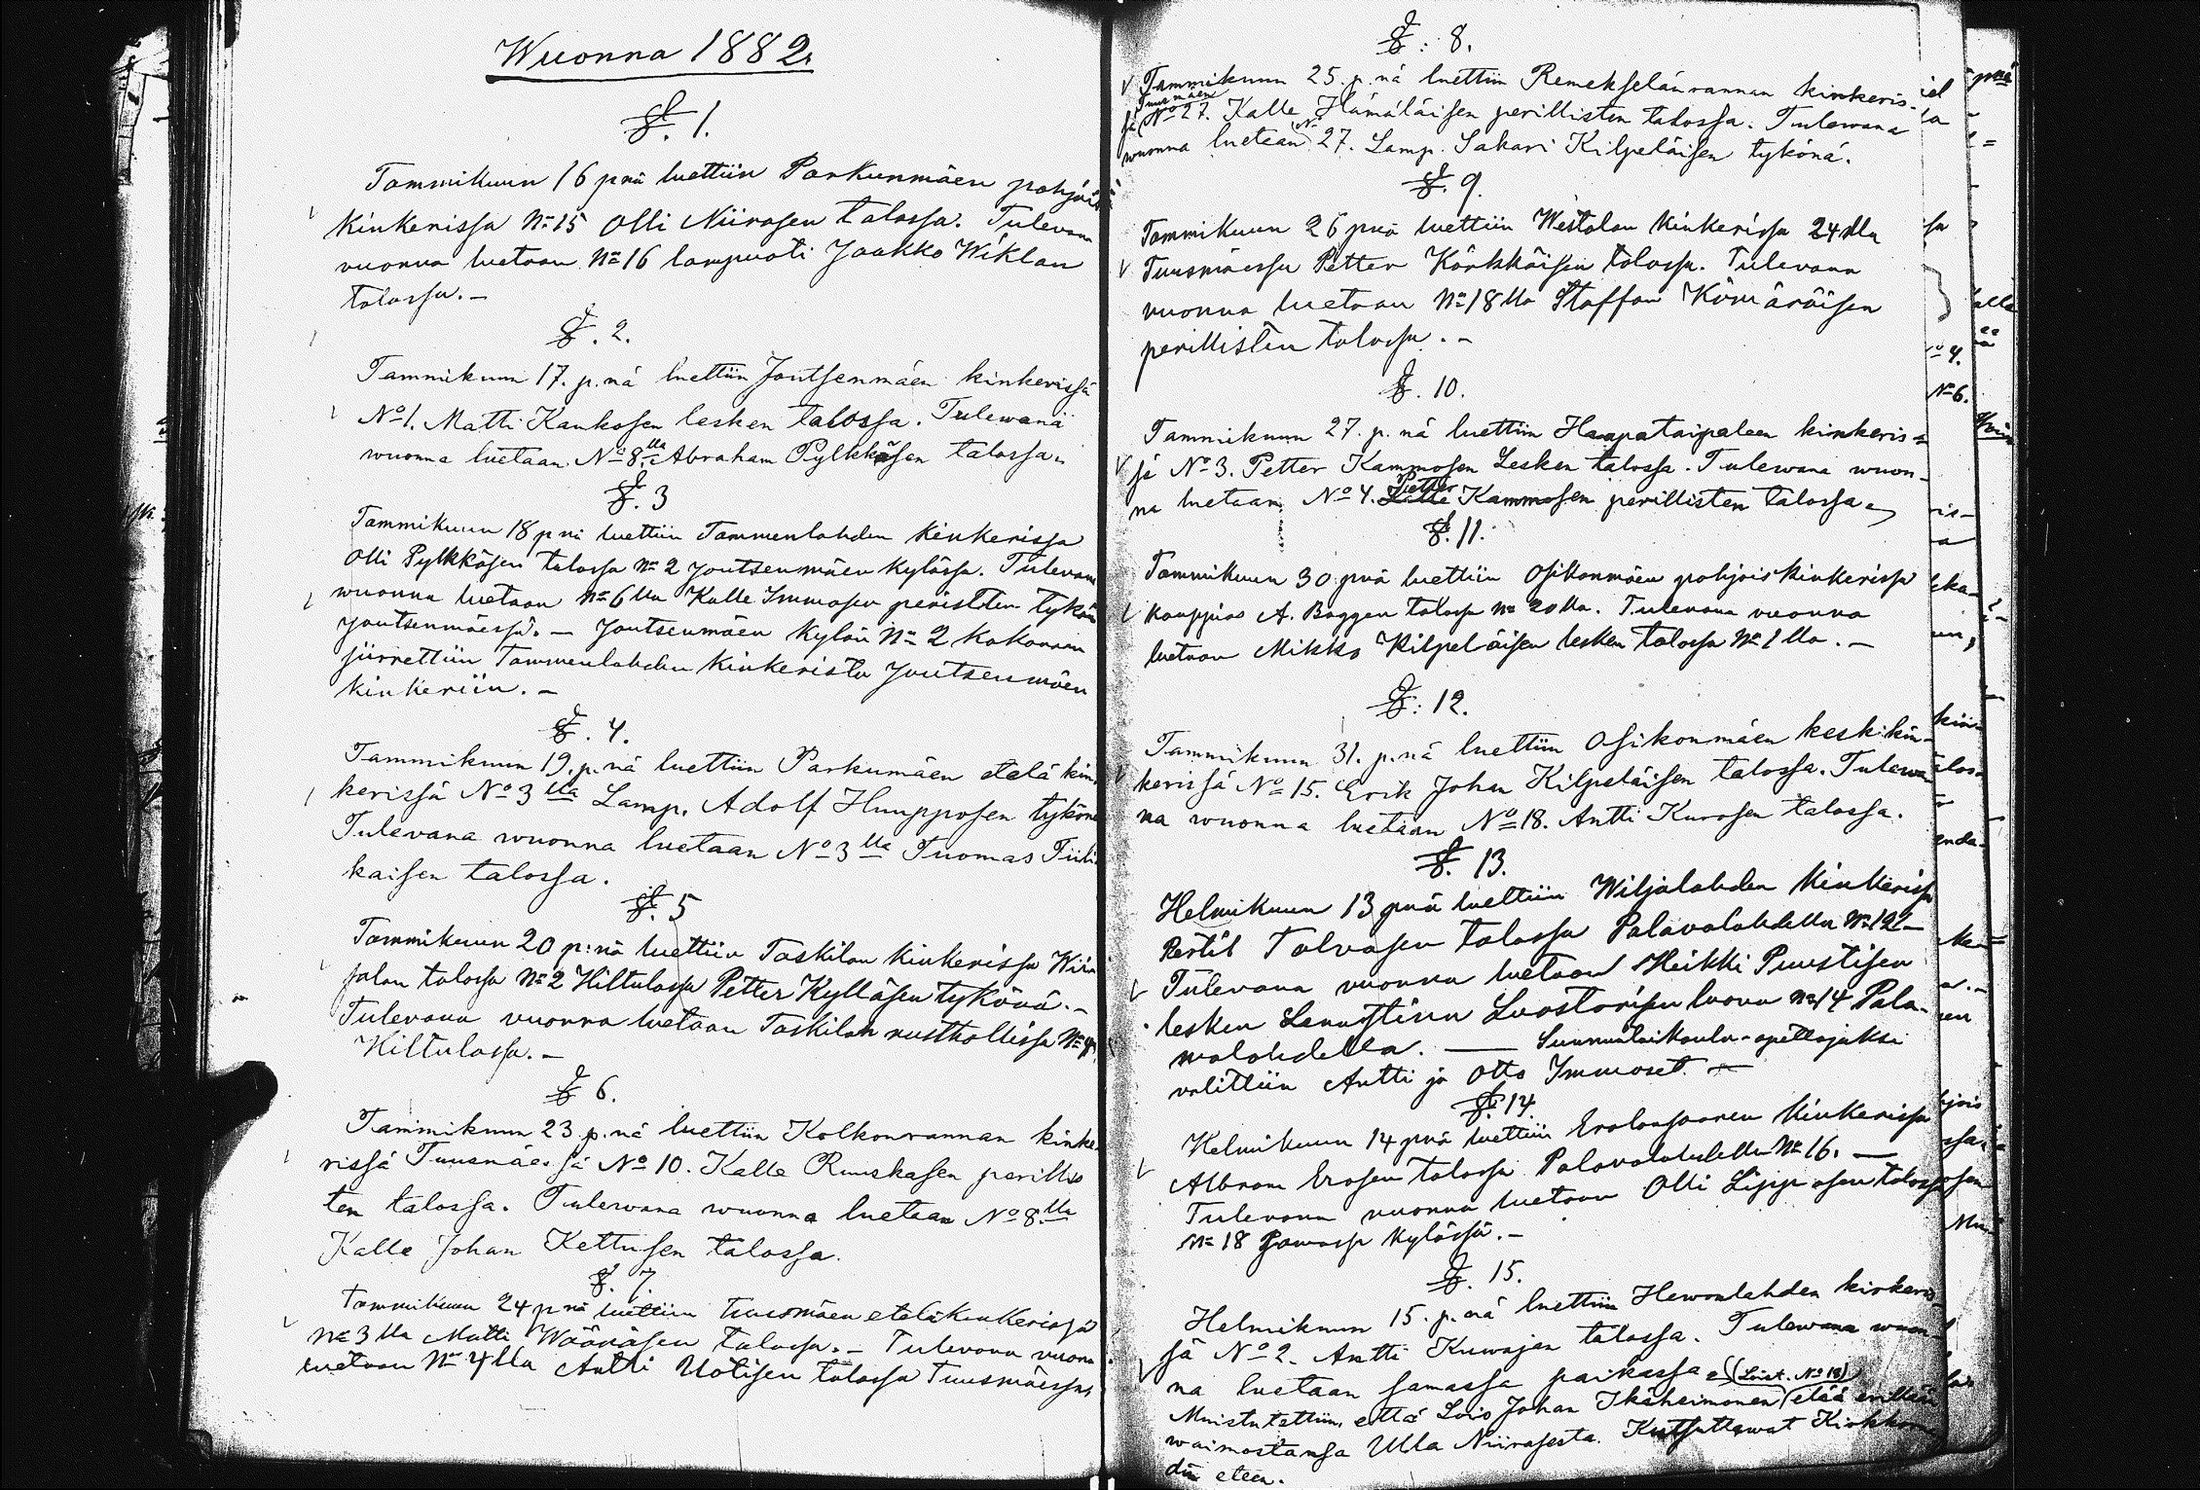 Wuonna 1882.
§. 1.
Tammikuun 16 pnä luettiin Parkunmäen pohjois
kinkerissa No 15 Olli Niirasen talossa. Tulevana
vuonna luetaan No 16 lampuoti Jaakko Wiklan
talossa.-
§. 2.
Tammikuun 17. p.nä luettiin Joutsenmäen kinkerissä
No 1. Matti Kankosen lesken talossa. Tulewana
wuonna luetaan No 8lla Abraham Pylkkäsen talossa.
§. 3
Tammikuun 18 pnä luettiin Tammenlahden kinkerissa
Olli Pylkkäsen talossa No 2 Joutsenmäen kylässa. Tulevana
wuonna luetaan No 6 lla Kalle Immosen perillisten tykön
Joutsenmäessä. — Joutsenmäen kylän No 2 kokonaan
siirrettiin Tammenlahden kinkeristä Joutsenmäen
kinkeriin.-
§. 4.
Tammikuun 19. p.nä luettiin Parkumäen etelä kin-
kerissä No 3lla Lamp. Adolf Huupposen tykönä
Tulevana wuonna luetaan No 3lla Tuomas Tiili-
kaisen talossa.
§. 5
Tammikuun 20 p:nä luettiin Taskilan kinkerissa
talossa No 2 Hiltulassa Petter Kylläsen tykönä.-
Tulevana vuonna luetaan Taskilan rusthollissa No
Hiltulassa.-
§ 6.
Tammikuun 23 p.nä luettiin Kolkonrannan kinke-
rissä Tuusmäessä No 10. Kalle Ruuskasen perillis
ten talossa. Tulewana wuonna luetaan No 8.lla
Kalle Johan Kettusen talossa.
§. 7.
Tammikuun 24 pnä luettiin Tuusmäen eteläkinkerissä
No 3 lla Matti Wäänäsen talossa.- Tulevana vuonna
luetaan No 4 lla Antti Uotisen talossa Tuusmäessä.
§: 8.
Tammikuun 25. p.nä luettiin Remekselänrannan kinkeris-
Tuusmäen
sä No 27. Kalle Hämäläisen perillisten talossa. Tulewana
wuonna luetaan No 27. Lamp. Sakari Kilpeläisen tykönä.
§. 9.
Tammikuun 26 pnä luettiin Westolan kinkerissa 24 lla
Tuusmäessa Petter Körkkäisen talossa. Tulevana
vuonna luetaan No 18 lla Staffan Kämäräisen
perillisten talossa.-
§. 10.
Tammikuun 27. p.nä luettiin Haapataipaleen kinkeris-
sä No 3. Petter Kammosen Lesken talossa. Tulewana wuon-
Petter
na luetaan No 4. Kammosen perillisten talossa.
§. 11.
Tammikuun 30 pnä luettiin Osikonmäen pohjoiskinkerissä
kauppias A. Baggen talossa No 20 lla. Tulevana vuonna
luetaan Mikko Kilpeläisen lesken talossa No 1 lla.-
§: 12.
Tammikuun 31. p.nä luettiin Osikonmäen keskikin-
kerissä No 15. Erik Johan Kilpeläisen talossa. Tulewa-
na wuonna luetaan No 18. Antti Kurosen talossa.
§. 13.
Helmikuun 13 pnä luettiin Wiljalahden kinkerissa
Pertil Talvasen talossa Palavalahdella No 12.-
Tulevana vuonna luetaan Heikki Puustisen
lesken luona No 14 Pala-
valahdella. — Sunnuntaikoulu-opettajaksi
valittiin Antti ja Otto Immoset.-
§. 14.
Helmikuun 14 pnä luettiin Erolansaaren kinkerissa
Albram Erosen talossa Palavalahdella No 16.—
Tulevana vuonna luetaan Olli Lipposen talossa
No 18 samassa kylässä.-
§. 15.
Helmikuun 15. p.nä luettiin Hewonlahden kinkeris-
sä No 2. Antti Kuwajan talossa. Tulewana wuon-
na luetaan samassa paikassa.
Muistutettiin, että Lois Johan Ikäheimonen (Loist. No 18) elää erillään
waimostansa Ulla Niirasesta. Kutsuttawat Kirkkon
din eteen.